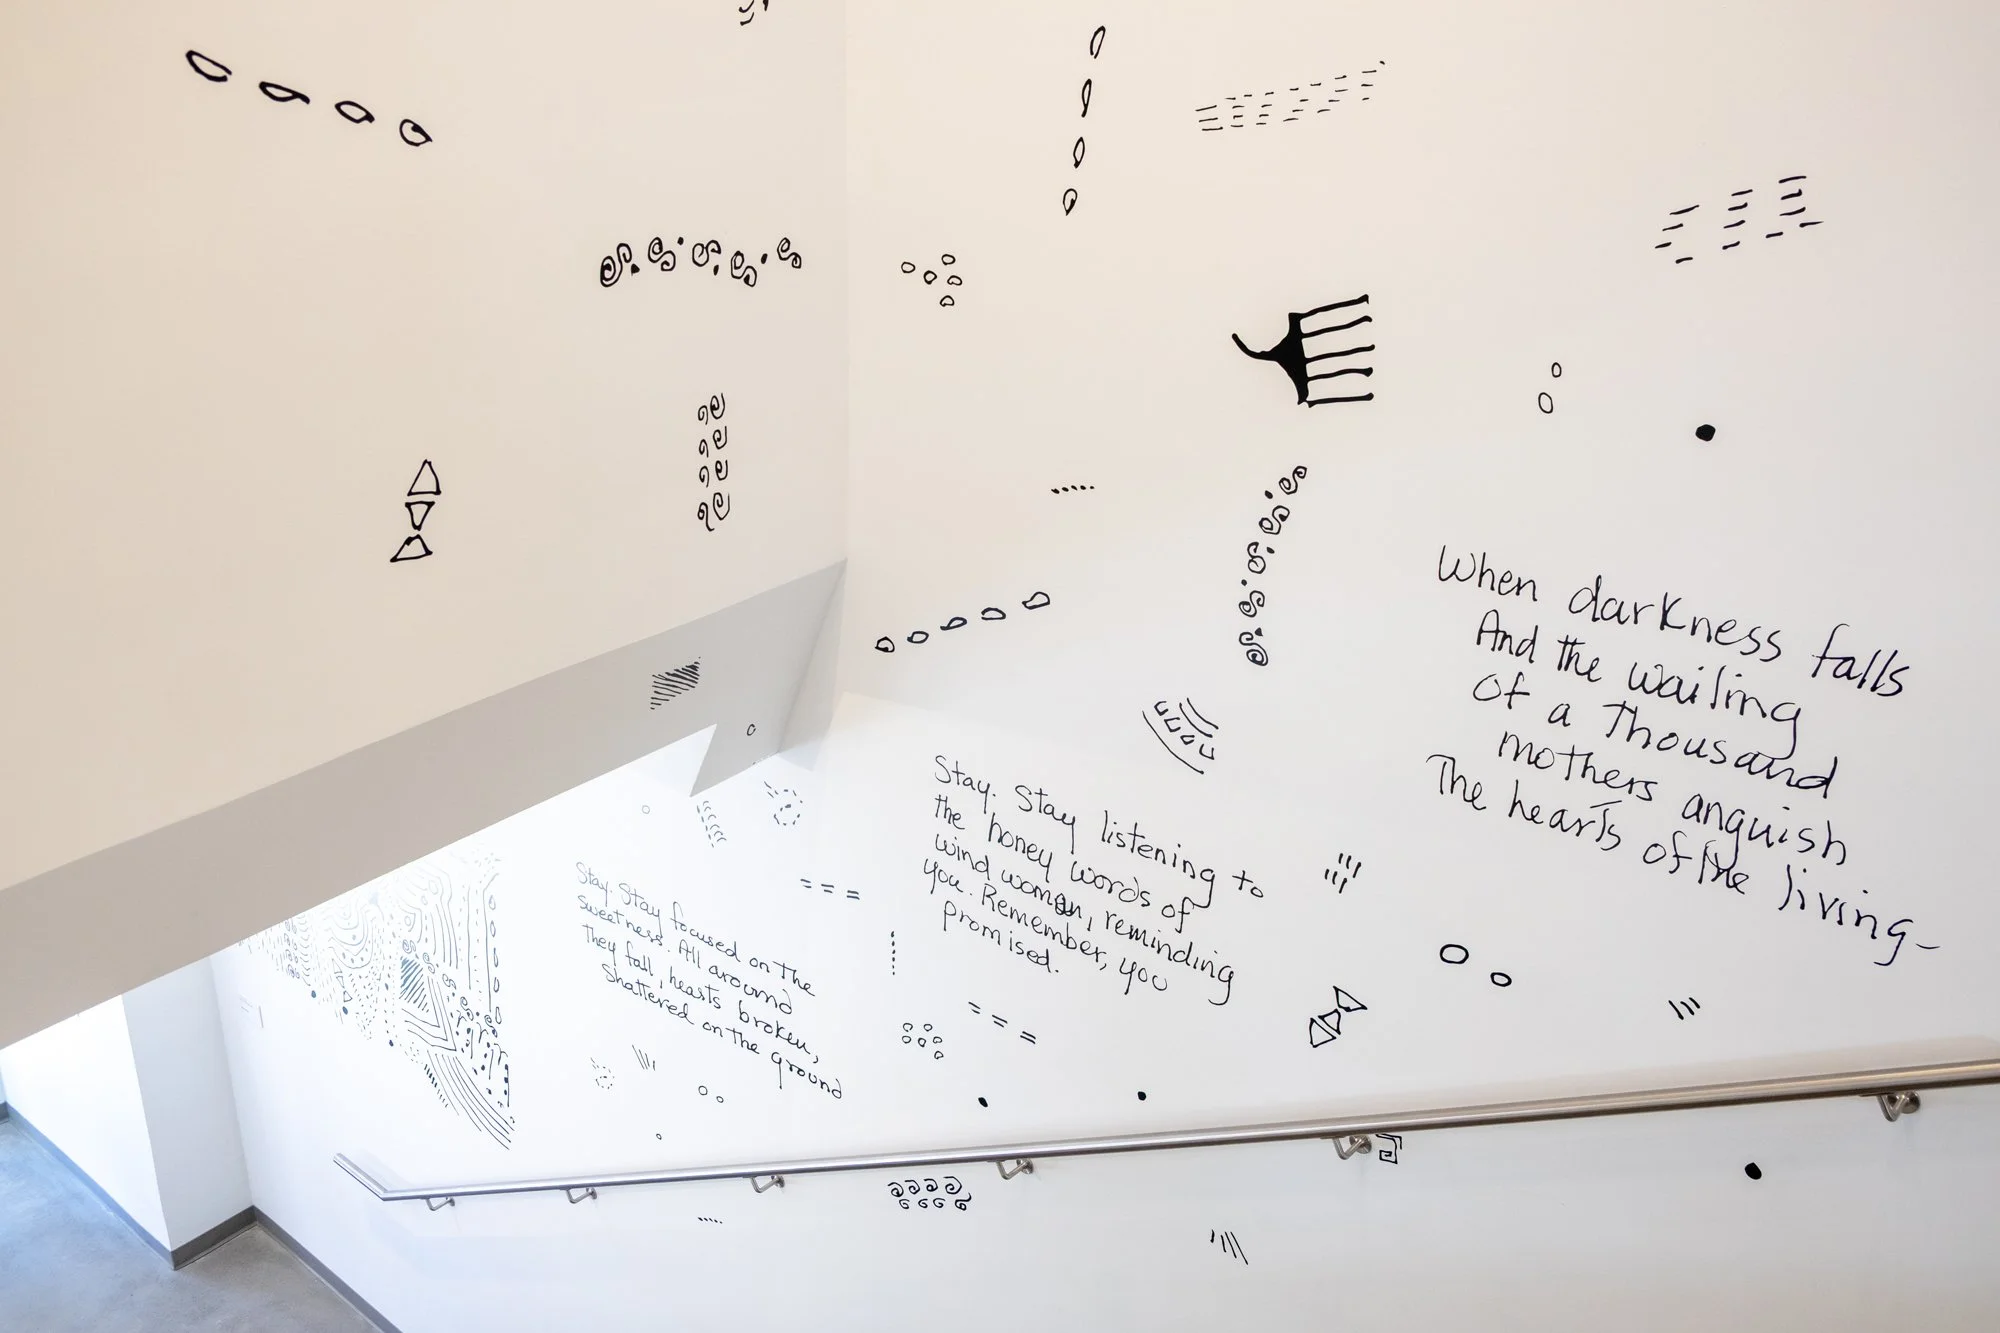 When darkness falls
And the wailing
of a Thousand
mothers anguish
The hearts of the living-
Stay. Stay listening to
the honey words of
wind woman, reminding
you. Remember, you
promised.
Stay. Stay focused on the
sweetness. All around
they fall, hearts broken,
shattered on the ground